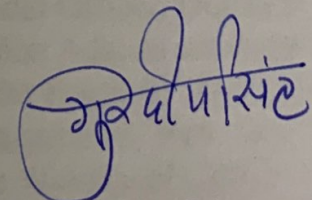 गुरदीपसिंह